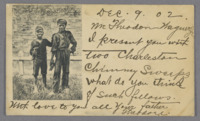 Dec. 9. 02.
Mr Theodor Wagner
I present you with
two Charleston
Chimney Sweeps
what do you think
of such fellows.
With love to you all Your father